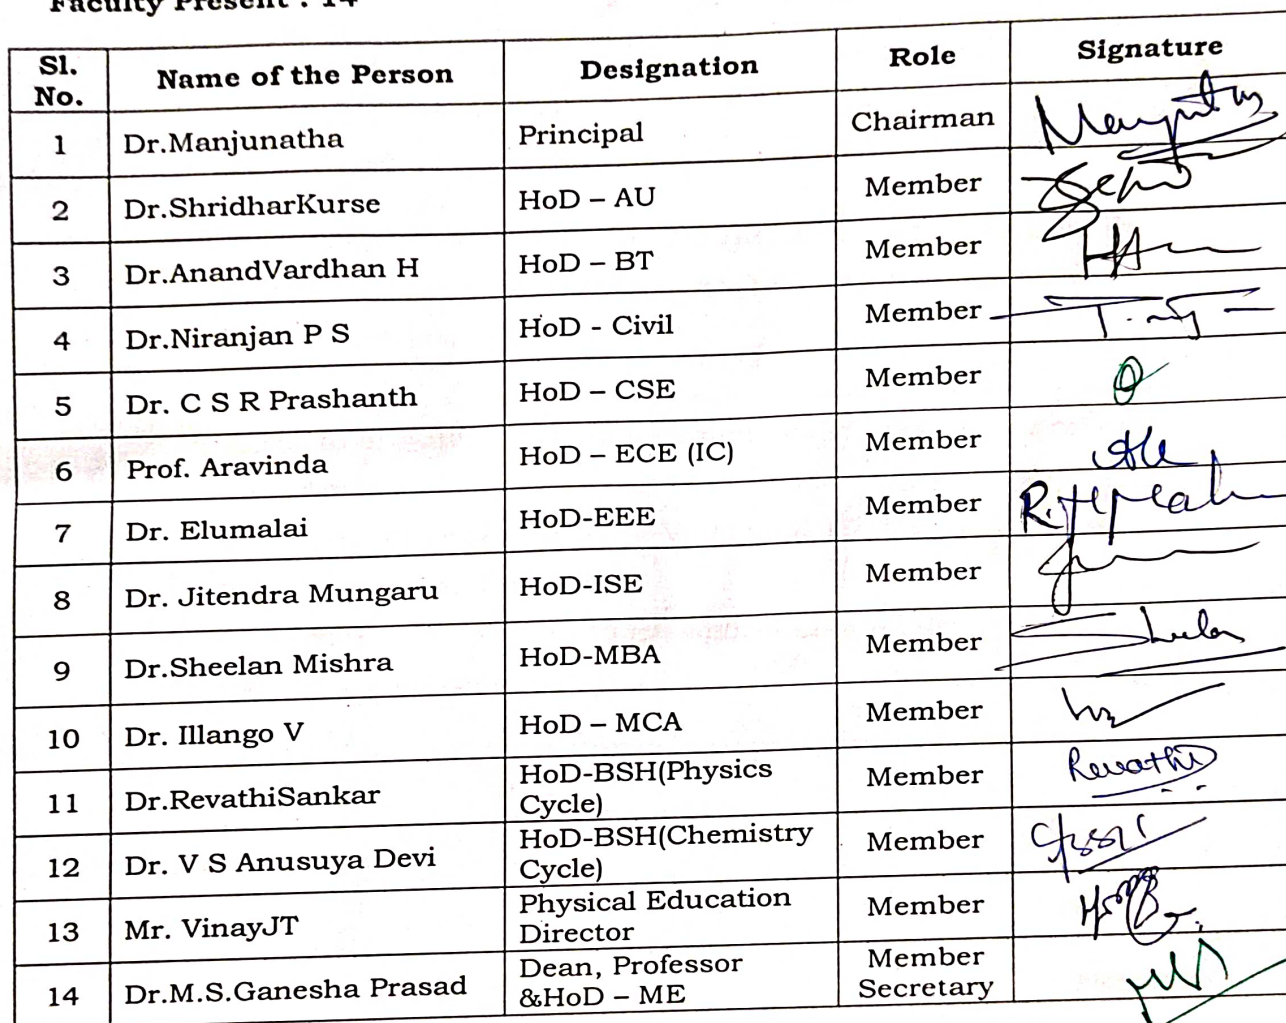 Faculty Present : 14
Sl. No. Name of the Person Designation Role Signature
1 Dr.Manjunatha Principal Chairman
2 Dr.ShridharKurse HoD – AU Member
3 Dr.AnandVardhan H HoD – BT Member
4 Dr.Niranjan P S HoD - Civil Member
5 Dr. C S R Prashanth HoD – CSE Member
6 Prof. Aravinda HoD – ECE (IC) Member
7 Dr. Elumalai HoD-EEE Member
8 Dr. Jitendra Mungaru HoD-ISE Member
9 Dr.Sheelan Mishra HoD-MBA Member
10 Dr. Illango V HoD – MCA Member
11 Dr.RevathiSankar HoD-BSH(Physics Cycle) Member Revathi
12 Dr. V S Anusuya Devi HoD-BSH(Chemistry Cycle) Member
13 Mr. VinayJT Physical Education Director Member
14 Dr.M.S.Ganesha Prasad Dean, Professor &HoD – ME Member Secretary